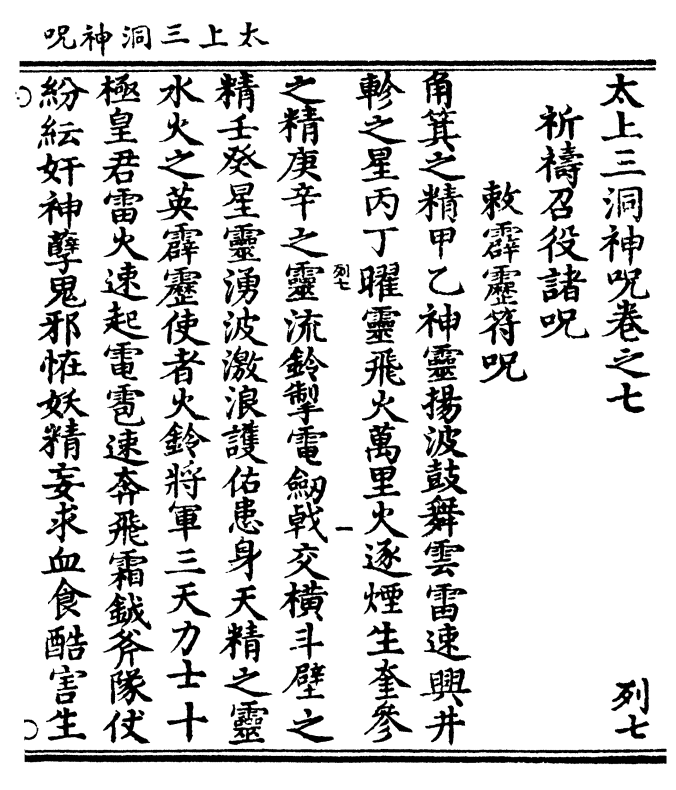 太上三洞神呪
太上三洞神呪卷之七
列七
祈禱召役諸呪
敕霹靂符呪
角箕之精甲乙神靈揚波鼓舞雲雷速興井
軫之星丙丁曜靈飛火萬里火逐煙生奎參
列七
一
之精庚辛之靈流鈴掣電劒戟交橫斗壁之
精壬癸星靈湧波激浪護佑患身天精之靈
水火之英霹靂使者火鈴將軍三天力士十
極皇君雷火速起電雹速奔飛霜鉞斧隊仗
紛紜奸神孽鬼邪恠妖精妄求血食酷害生